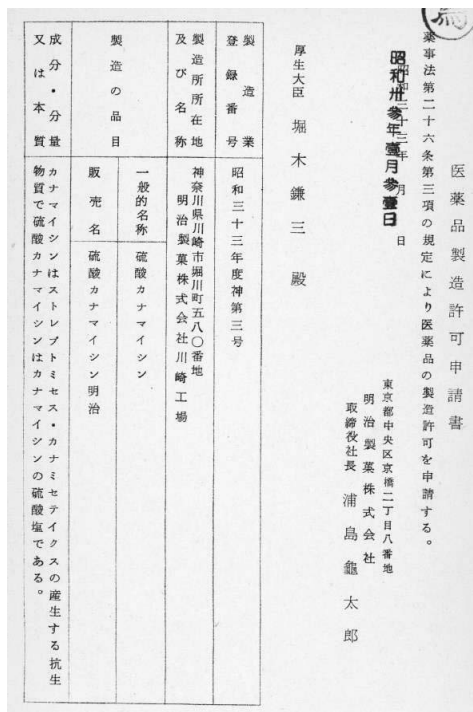 医薬品製造許可申請書
薬事法第二十六条第三項の規定により医薬品の製造許可を申請する。
昭和三十三年 月 日
昭和卅参年壹月参壹日
東京都中央区京橋二丁目八番地
明治製菓株式会社
取締役社長 浦島龜太郎
厚生大臣 堀木鎌三 殿
製造業登録番号
昭和三十三年度神第三号
製造所所在地及び名称
神奈川県川崎市堀川町五八〇番地
明治製菓株式会社川崎工場
製造の品目
一般的名称 硫酸カナマイシン
販売名 硫酸カナマイシン明治
成分・分量又は本質
カナマイシンはストレプトミセス・カナミセテイクスの産生する抗生
物質で硫酸カナマイシンはカナマイシンの硫酸塩である。